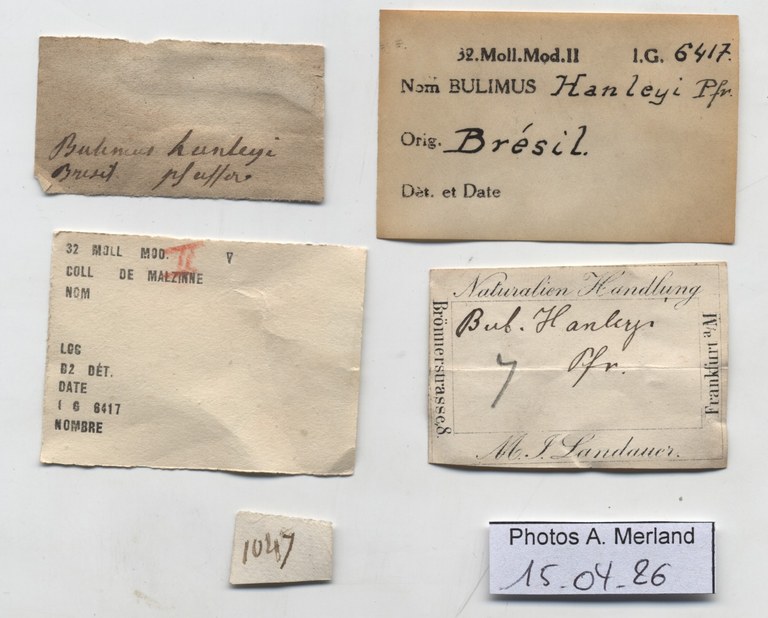 Bulimus hanleyi
Bresil pfeiffer
32.Moll.Mod.II I.G. 6417.
Nom BULIMUS Hanleyi Pfr.
Orig. Brésil.
Dèt. et Date
32 MOLL MOD. II V
COLL DE MALZINNE
NOM
LOC
B2 DÉT.
DATE
I G 6417
NOMBRE
Naturalien Handlung
Brönnerstrasse, 8.
Bul. Hanleyi
Pfr.
7
Frankfurt a/M
M. J. Landauer.
1047
Photos A. Merland
15-04-26